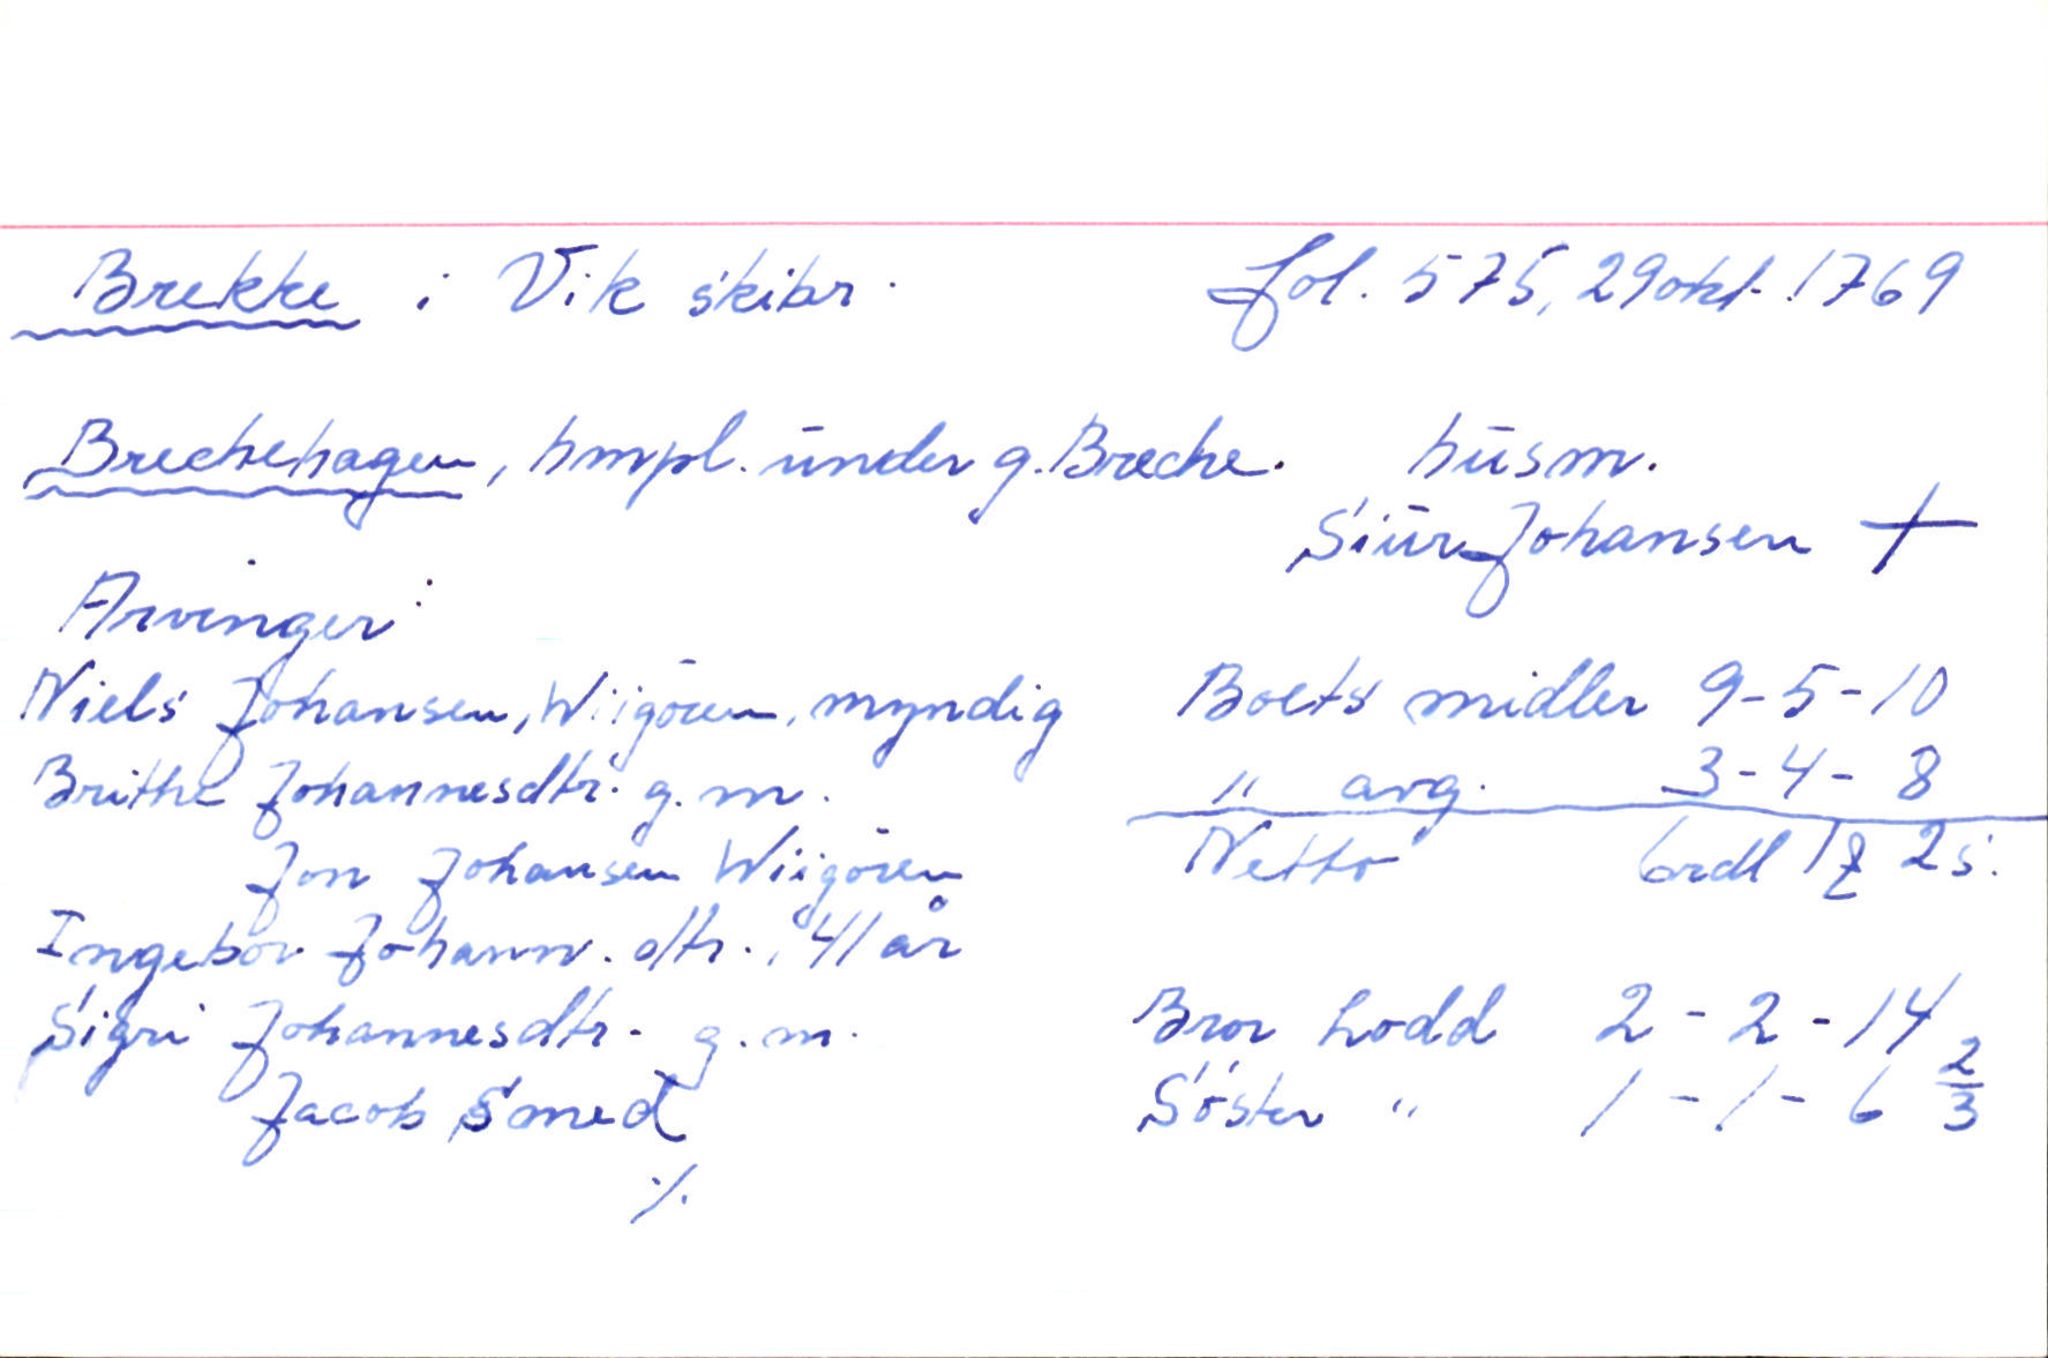 Brekke i Vik skibr. fol. 575, 29 okt. 1769
Brechehagen, hmpl. under g. Bræche. husm.
Siur Johansen +
Arvinger:
Niels Johansen, Wiigören, myndig Boets midler 9-5-10
Brithe Johannesdtr. g.m. " avg. 3-4-8
Jon Johansen Wiigören Netto 6rdl 1 2s.
Ingebor Johann.dtr., 41 år
Sigri Johannesdtr. g.m. Bror Lodd 2-2-14
Jacob Smed Söster " 1-1-6 2/3
./.